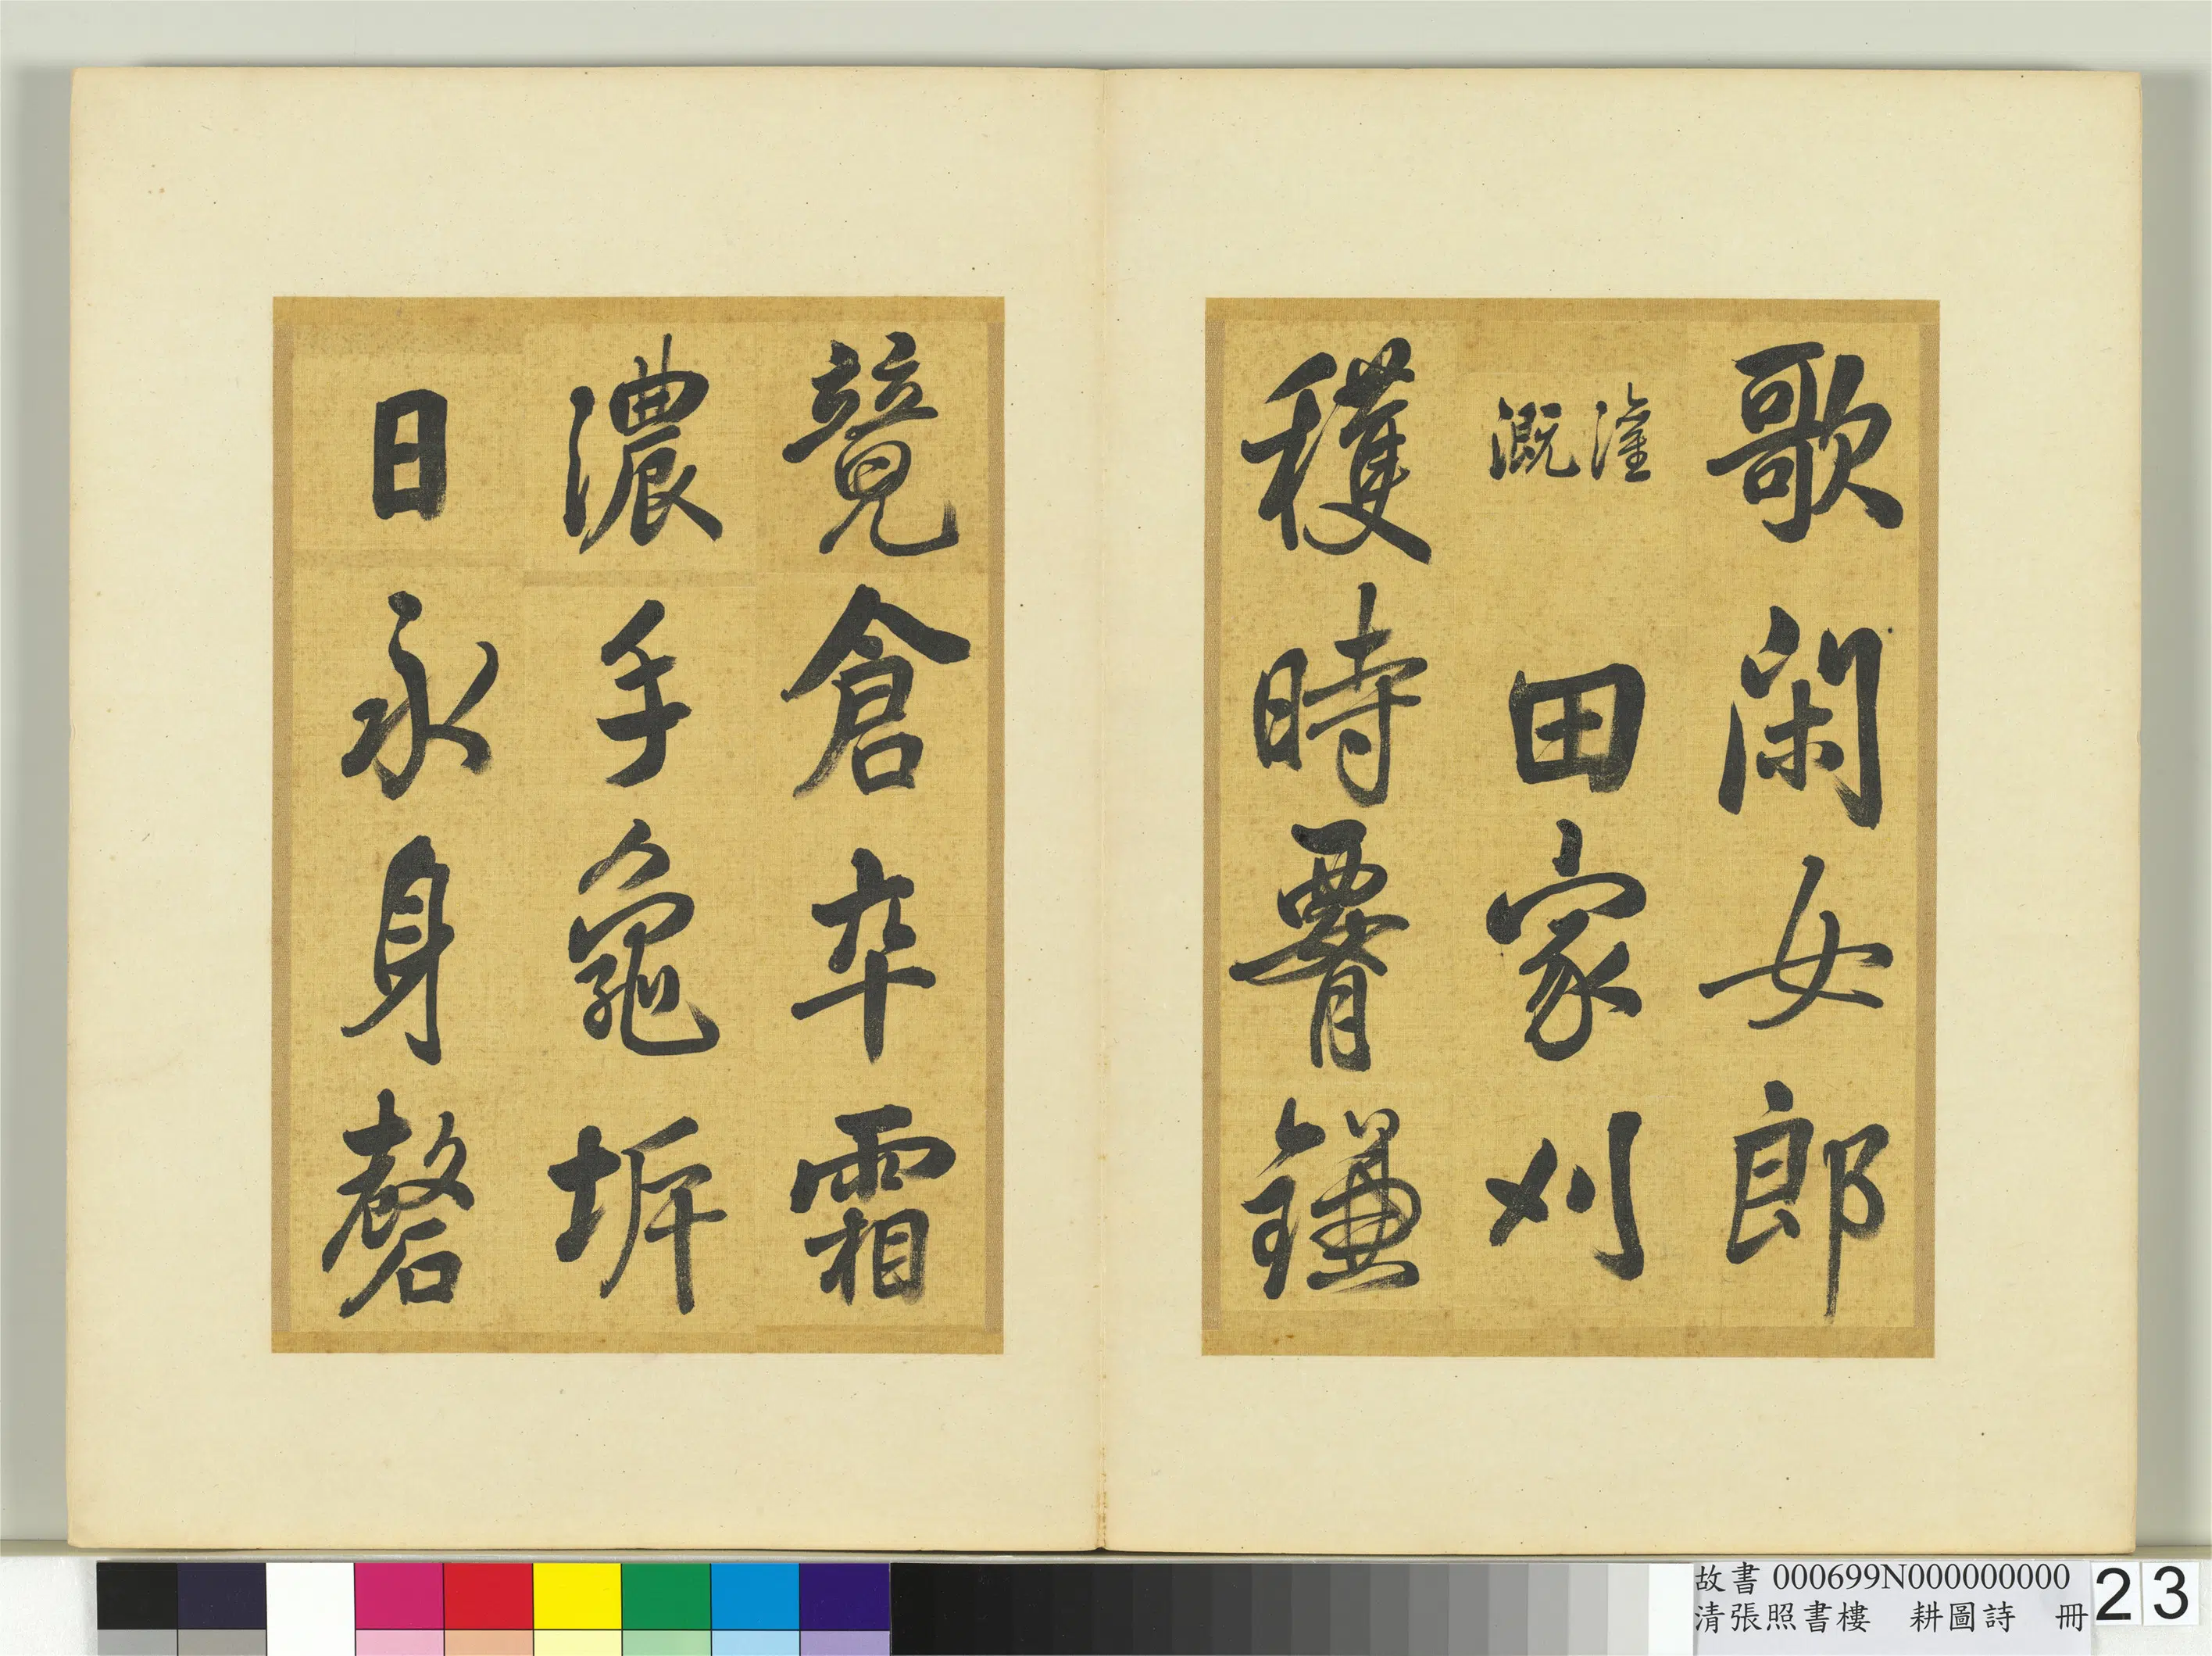 歌閑女郎
灌溉
田家刈
穫時腰鎌
競倉卒霜
濃手龜坼
日永身磬
故書 000699N000000000
清張照書樓 耕圖詩 冊
23